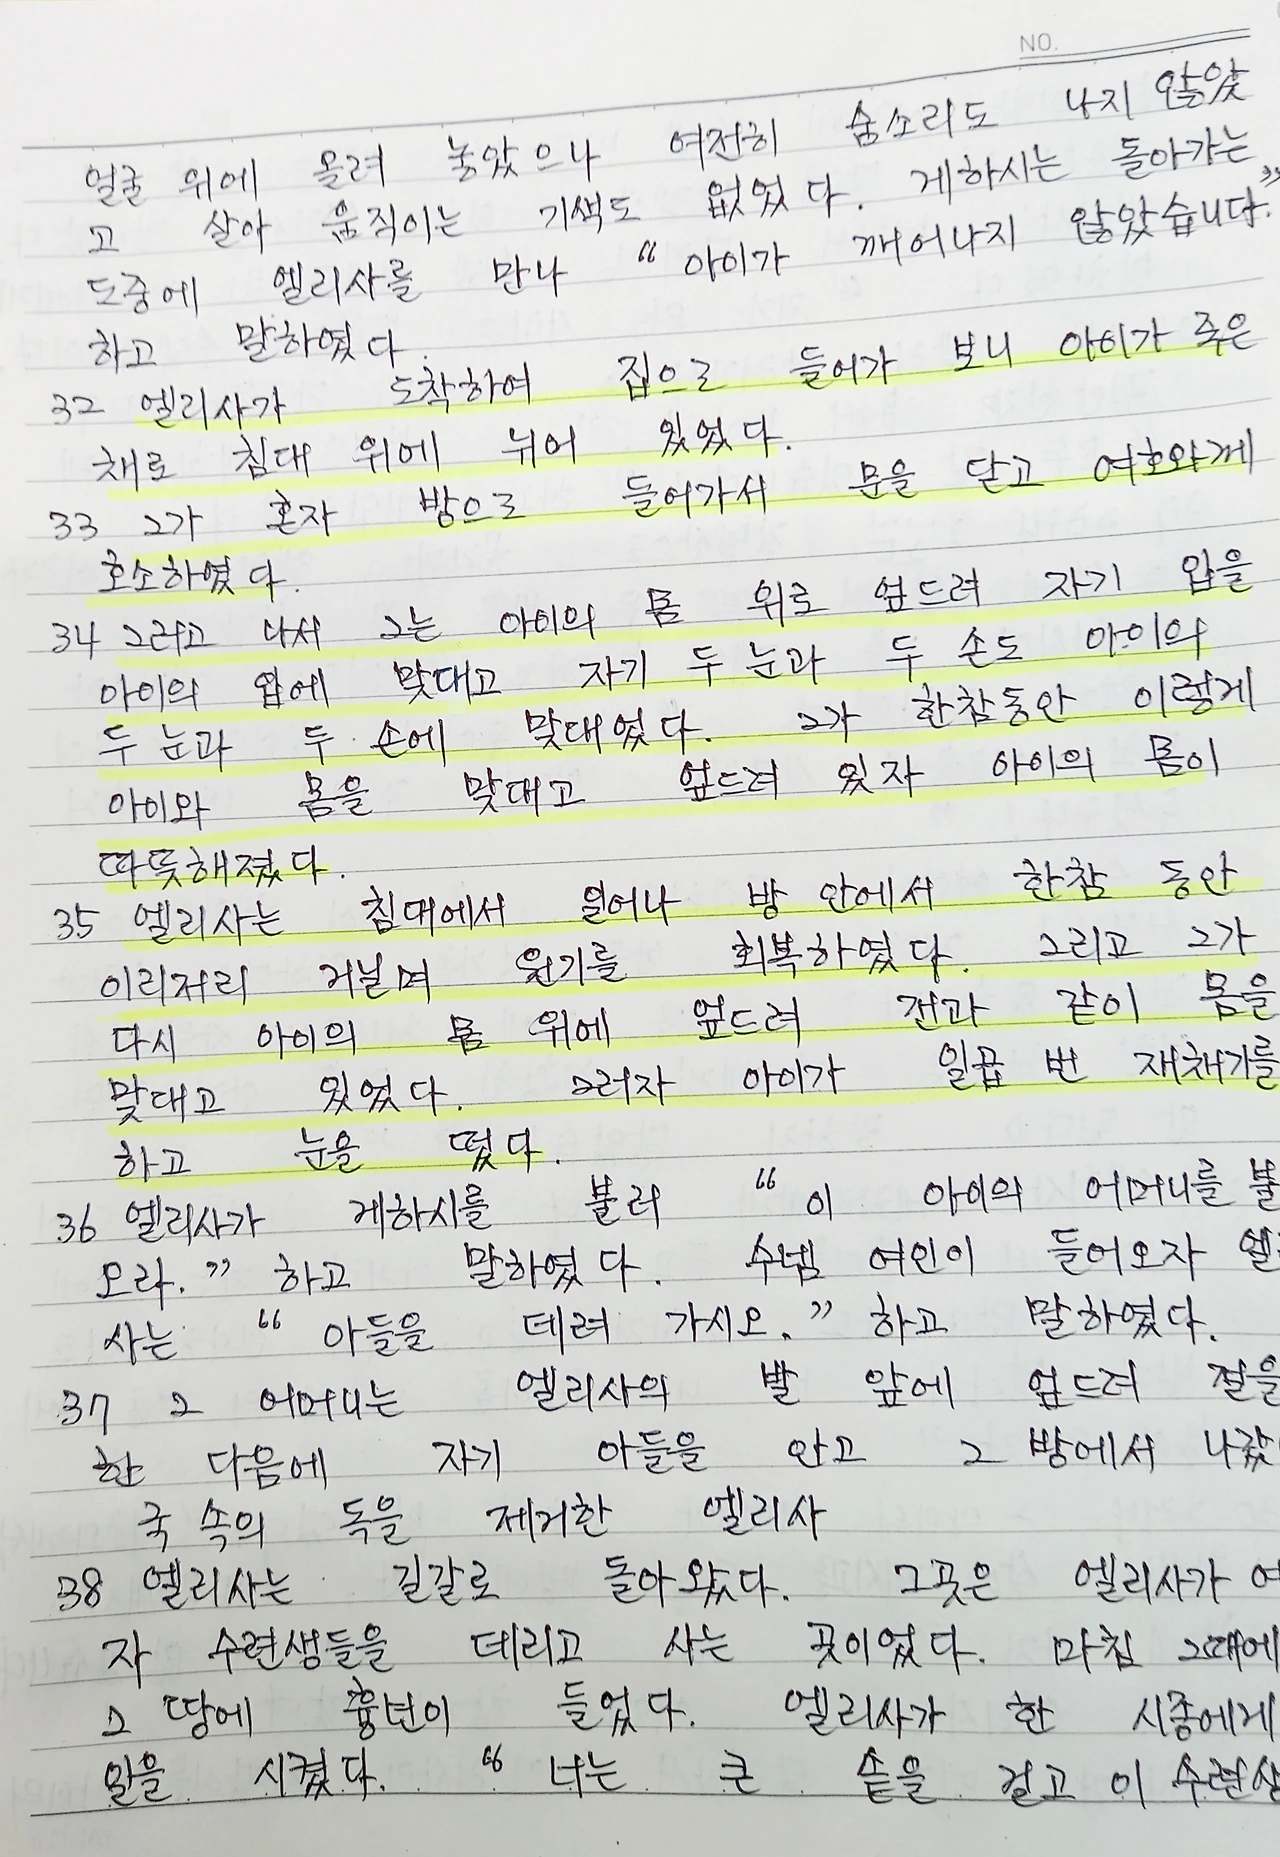 NO.
얼굴 위에 올려 놓았으나 여전히 숨소리도 나지 않았
고 살아 움직이는 기색도 없었다. 게하시는 돌아가는
도중에 엘리사를 만나 “아이가 깨어나지 않았습니다.”
하고 말하였다.
32 엘리사가 도착하여 집으로 들어가 보니 아이가 죽은
채로 침대 위에 뉘어 있었다.
33 그가 혼자 방으로 들어가서 문을 닫고 여호와께
호소하였다.
34 그러고 나서 그는 아이의 몸 위로 엎드려 자기 입을
아이의 입에 맞대고 자기 두 눈과 두 손도 아이의
두 눈과 두 손에 맞대었다. 그가 한참동안 이렇게
아이와 몸을 맞대고 엎드려 있자 아이의 몸이
따뜻해졌다.
35 엘리사는 침대에서 일어나 방 안에서 한참 동안
이리저리 거닐며 원기를 회복하였다. 그리고 그가
다시 아이의 몸 위에 엎드려 전과 같이 몸을
맞대고 있었다. 그러자 아이가 일곱 번 재채기를
하고 눈을 떴다.
36 엘리사가 게하시를 불러 “이 아이의 어머니를 불
오라.” 하고 말하였다. 수넴 여인이 들어오자 엘
사는 “아들을 데려 가시오.” 하고 말하였다.
37 그 어머니는 엘리사의 발 앞에 엎드려 절을
한 다음에 자기 아들을 안고 그 방에서 나갔
국 속의 독을 제거한 엘리사
38 엘리사는 길갈로 돌아왔다. 그곳은 엘리사가 예
자 수련생들을 데리고 사는 곳이었다. 마침 그때에
그 땅에 흉년이 들었다. 엘리사가 한 시종에게
일을 시켰다. “너는 큰 솥을 걸고 이 수련생